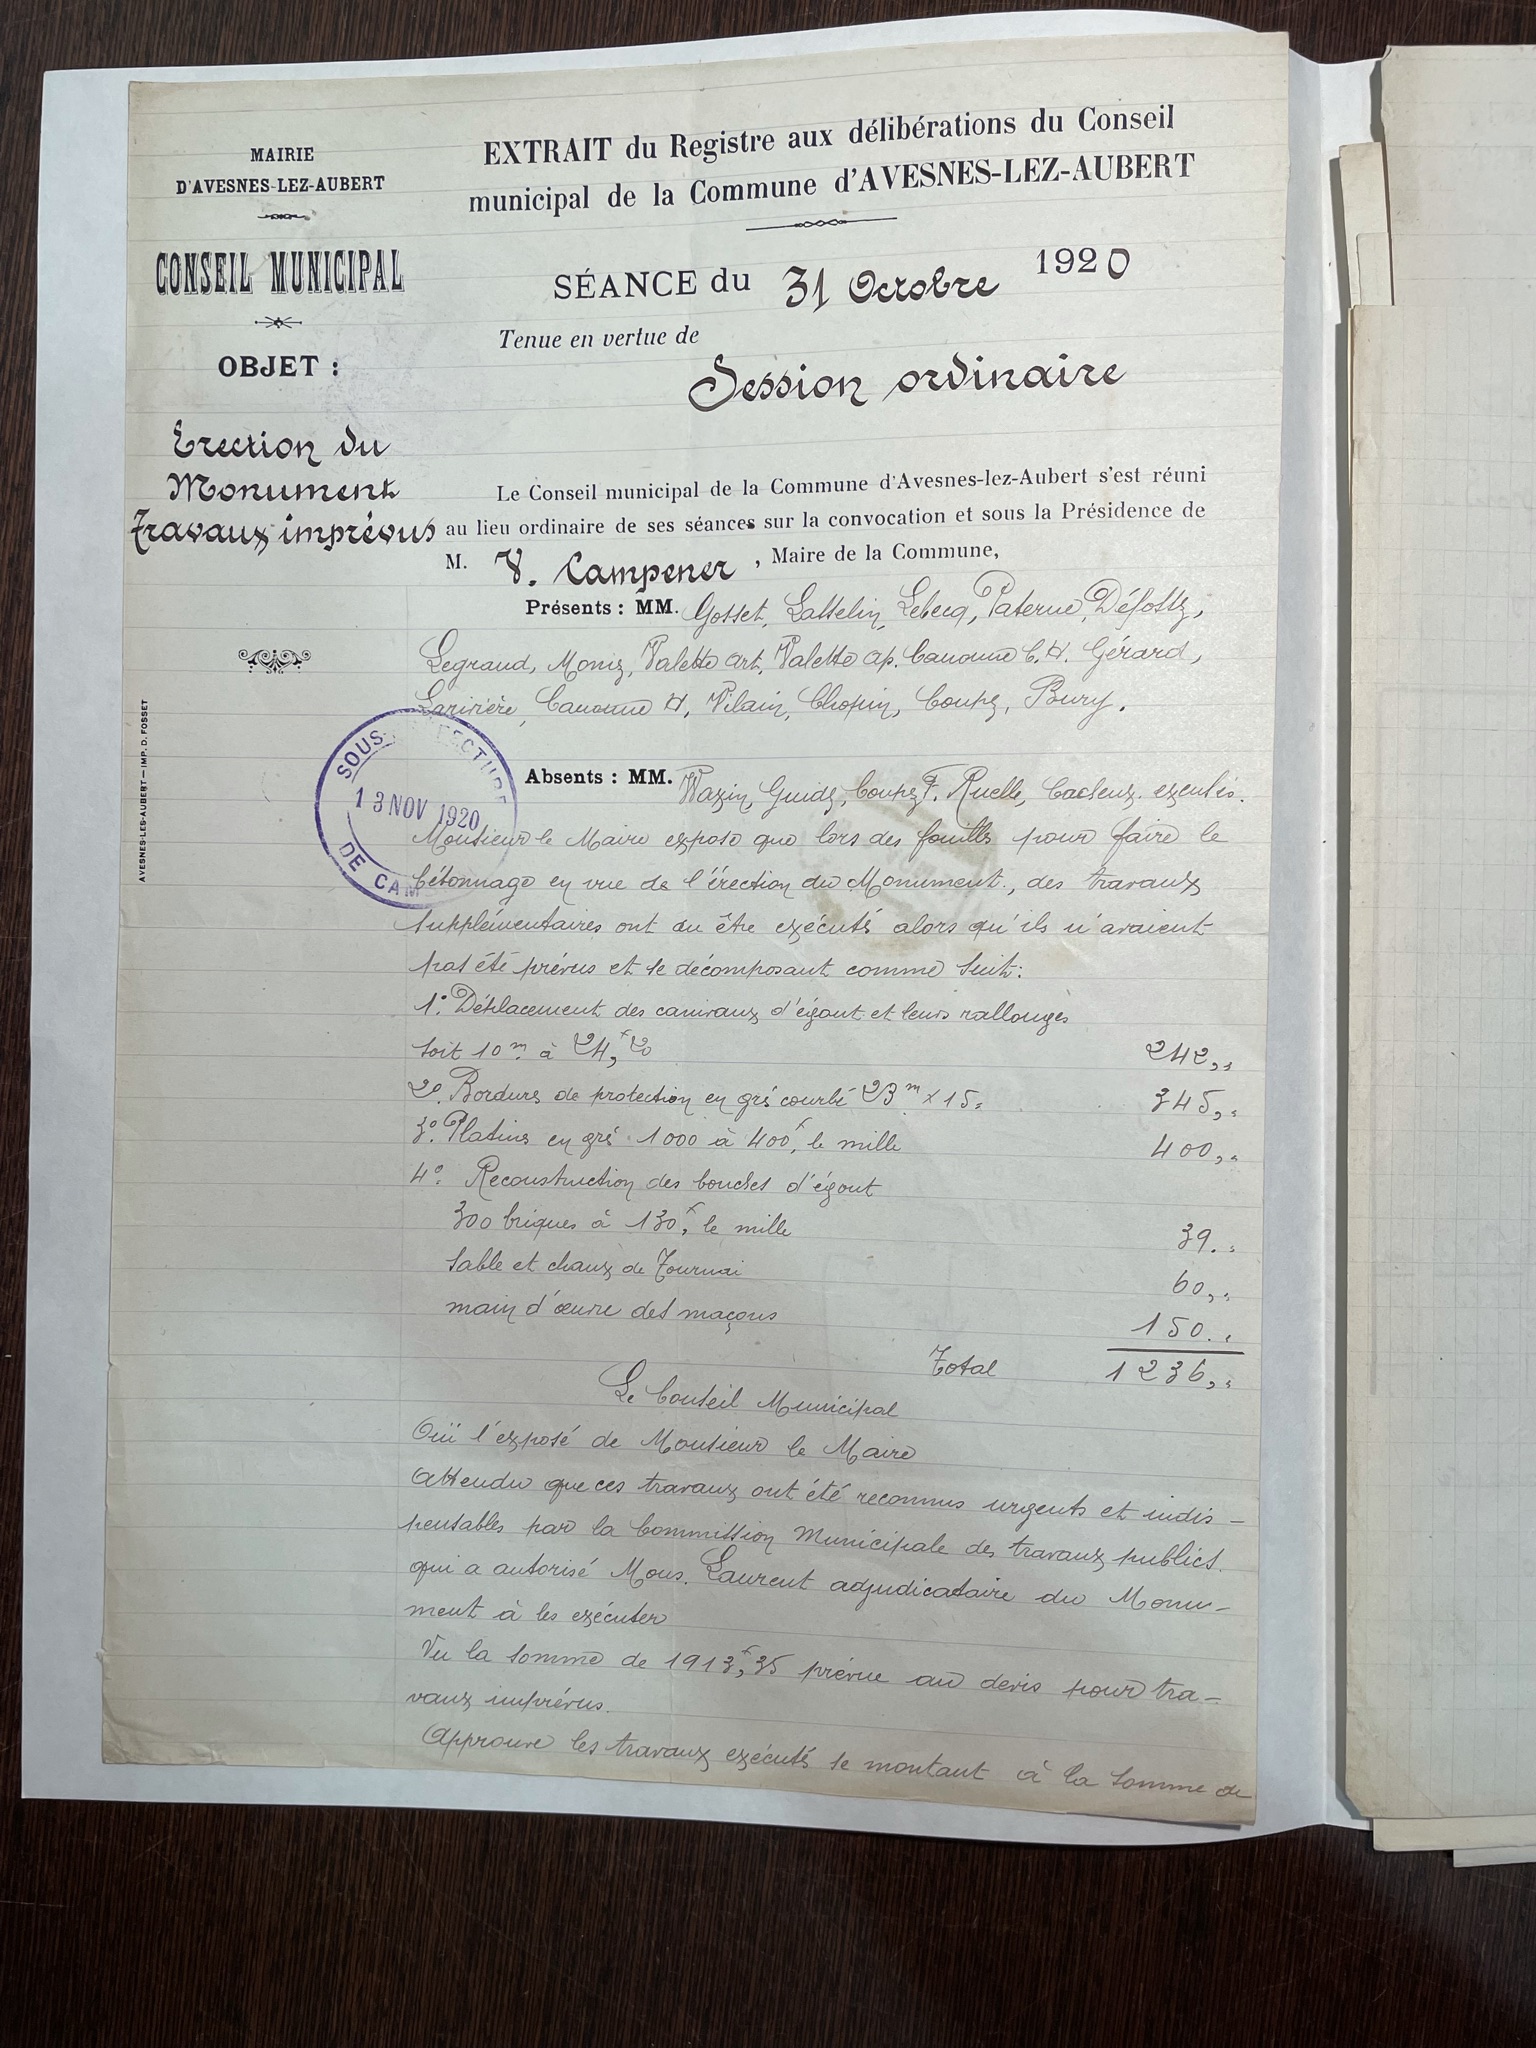 MAIRIE
D'AVESNES-LEZ-AUBERT
CONSEIL MUNICIPAL
OBJET :
Erection du
Monument
Travaux imprévus
AVESNES-LES-AUBERT — IMP. D. FOSSET
EXTRAIT du Registre aux délibérations du Conseil
municipal de la Commune d'AVESNES-LEZ-AUBERT
SÉANCE du 31 Octobre 1920
Tenue en vertue de
Session ordinaire
Le Conseil municipal de la Commune d'Avesnes-lez-Aubert s'est réuni
au lieu ordinaire de ses séances sur la convocation et sous la Présidence de
M. V. Campener, Maire de la Commune,
Présents : MM. Gosset, Lasselin, Lebecq, Paterne, Défossez,
Legrand, Monez, Valette art, Valette ap. Canonne C. H. Gérard,
Larivière, Canonne H, Vilain, Chopin, Coupez, Bury.
SOUS-PRÉFECTURE
13 NOV 1920
DE CAM
Absents : MM. Wazin, Guidez, Coupez F. Ruelle, Cacheux. excusés.
Monsieur le Maire expose que lors des fouilles pour faire le
bétonnage en vue de l'érection du Monument, des travaux
supplémentaires ont du être exécutés alors qu'ils n'avaient
pas été prévus et se décomposant comme suit:
1º. Déplacement des caniveaux d'égout et leurs rallonges
soit 10m à 24,f20 242,"
2º. Bordures de protection en grès courbé 23m x 15= 345,"
3º. Platins en grès 1000 à 400f, le mille 400,"
4º. Reconstruction des bouches d'égout
300 briques à 130f, le mille 39."
sable et chaux de Tournai 60,"
main d'œuvre des maçons 150."
Total 1236,"
Le Conseil Municipal
Ouï l'exposé de Monsieur le Maire
Attendu que ces travaux ont été reconnus urgents et indis-
pensables par la Commission Municipale des travaux publics.
qui a autorisé Mons. Laurent adjudicataire du Monu-
ment à les exécuter
Vu la somme de 1913f,35 prévue au devis pour tra-
vaux imprévus.
Approuve les travaux exécutés se montant à la somme de